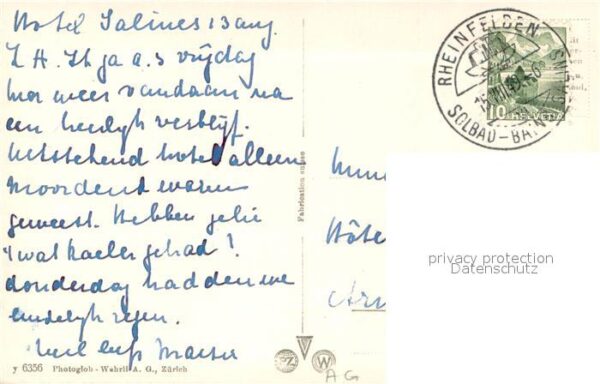 Hotel Salines 13 aug.
L H. Ik ga a.s vrijdag
hier weer vandaan na
een heerlijk verblijf.
Uitstekend hotel alleen
moordend warm
geweest. Hebben jelie
't wat koeler gehad?
donderdag hadden we
eindelijk regen.
Veel liefs
Fabrication suisse
y 6356 Photoglob-Wehrli A. G., Zürich
PZ W
AG
RHEINFELDEN
SOLBAD-BAINS
10 HELVETIA
Hôte
privacy protection
Datenschutz